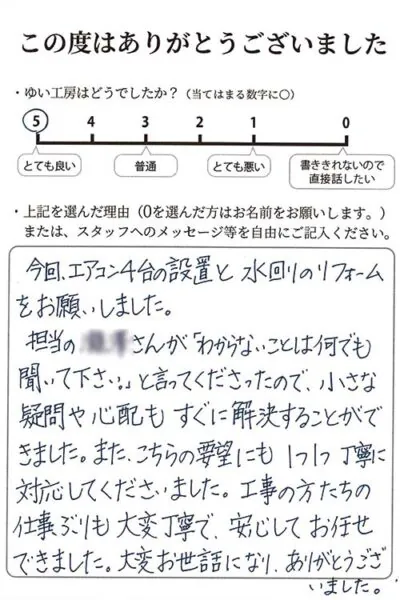 この度はありがとうございました
・ゆい工房はどうでしたか？（当てはまる数字に○）
5 4 3 2 1 0
とても良い 普通 とても悪い 書ききれないので
直接話したい
・上記を選んだ理由（0を選んだ方はお名前をお願いします。）
または、スタッフへのメッセージ等を自由にご記入ください。
今回、エアコン4台の設置と水回りのリフォーム
をお願いしました。
担当の さんが「わからないことは何でも
聞いて下さい。」と言ってくださったので、小さな
疑問や心配もすぐに解決することがで
きました。また、こちらの要望にも1つ1つ丁寧に
対応してくださいました。工事の方たちの
仕事ぶりも大変丁寧で、安心してお任せ
できました。大変お世話になり、ありがとうござ
いました。